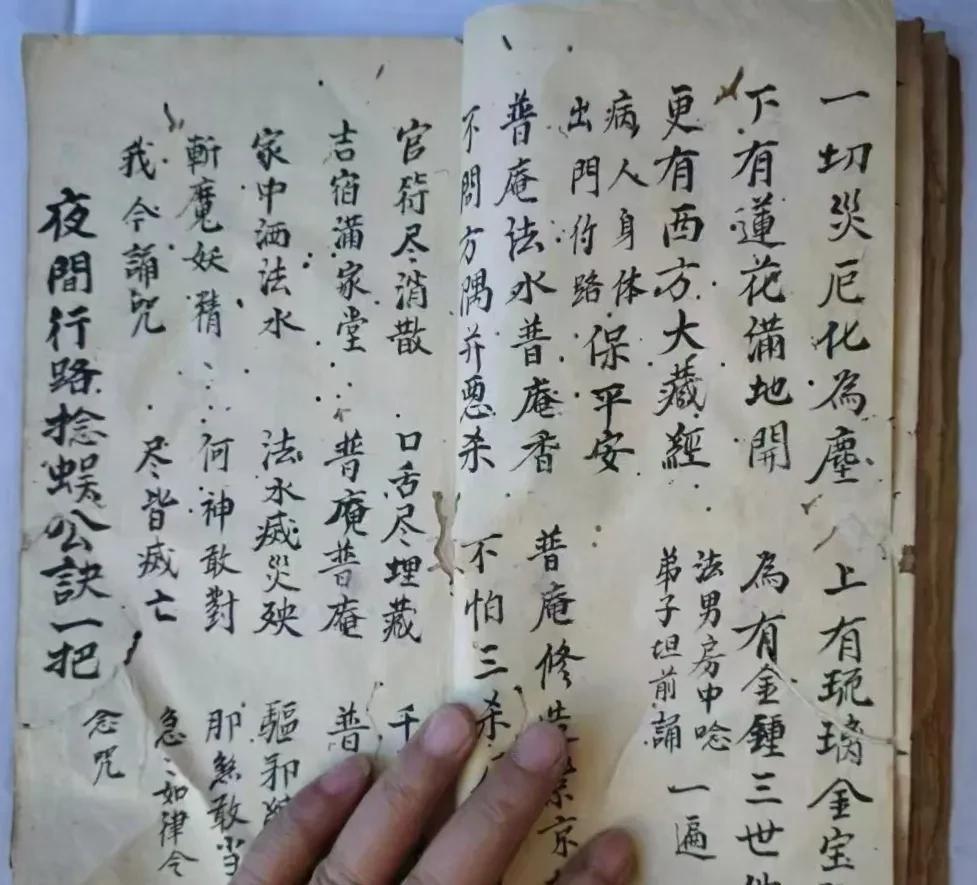 一切災厄化為塵 上有琉璃金宝
下有蓮花滿地開 為有金鍾三世
更有西方大藏經 法男房中唸 弟子坦前誦 一遍
病人身体 出門行路 保平安
普庵法水普庵香 普庵修造 京
不問方隅并惡杀 不怕三杀
官符尽消散 口舌尽埋藏 千
吉宿滿家堂 普庵普庵 普
家中洒法水 法水滅災殃 驅邪
斬魔妖精 何神敢對 那煞敢当
我今誦咒 尽皆滅亡 急〻如律令
夜間行路捻蜈公訣一把 念咒